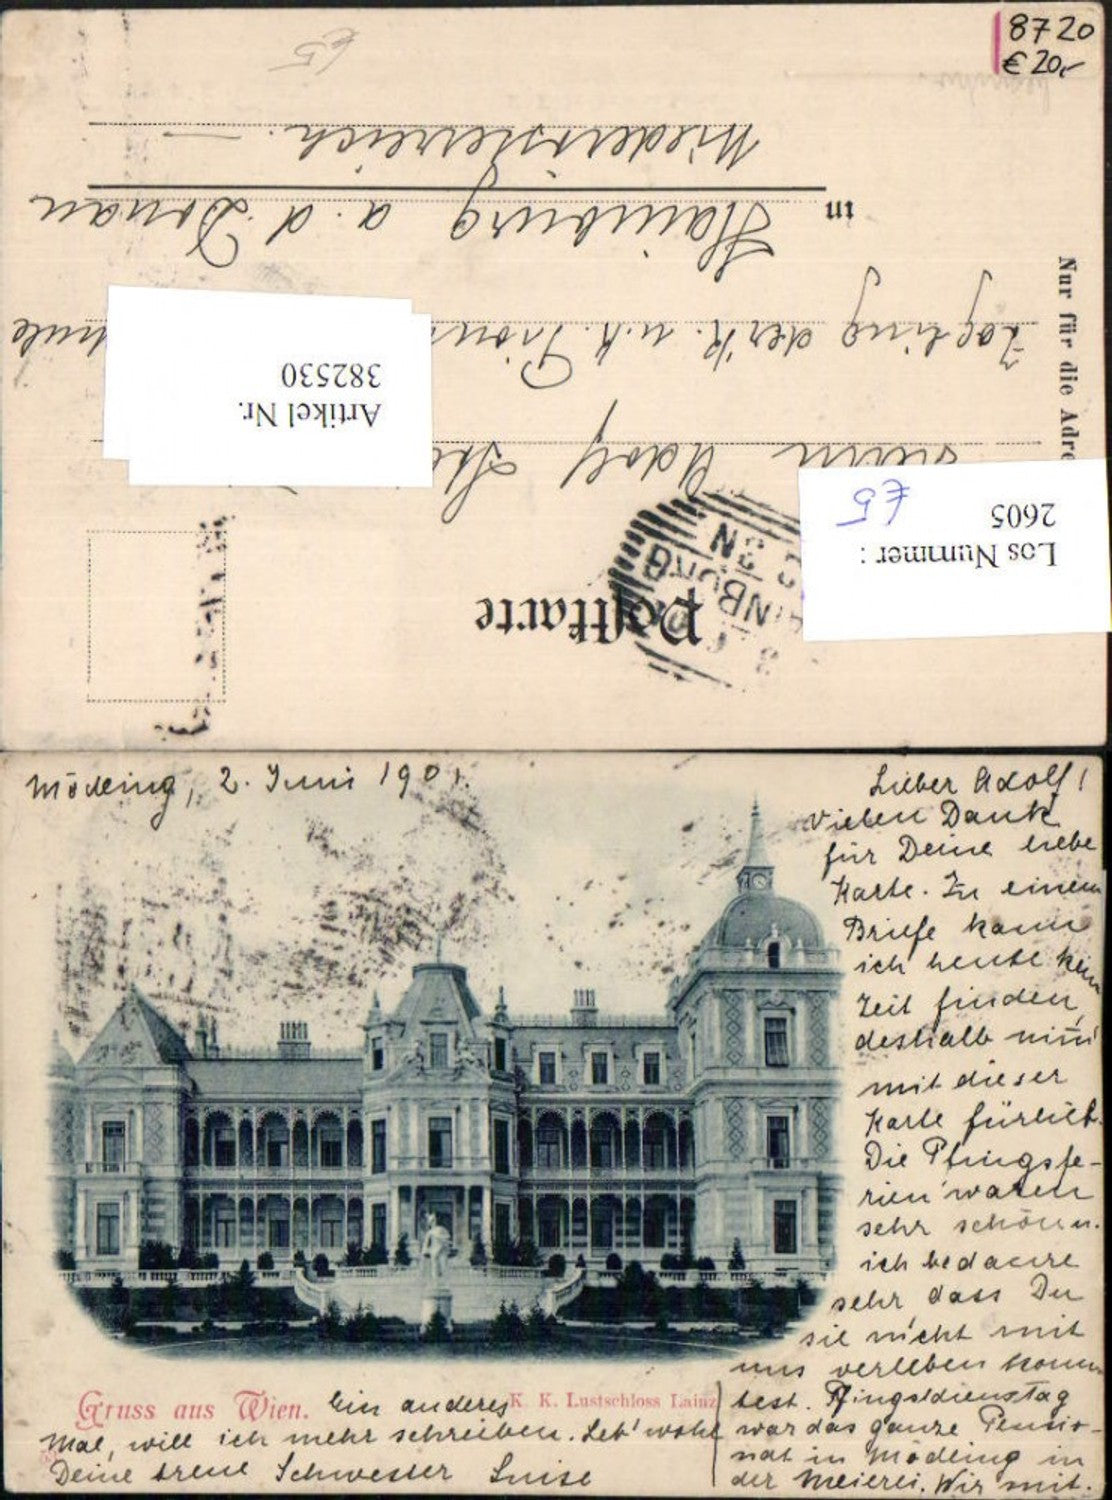 8720
€ 20,-
€5
Niederösterreich.
in Hainburg a. d. Donau
Zögling der k. u. k.
Adolf
Nur für die Adre
Artikel Nr.
382530
Los Nummer :
2605
€5
Postkarte
Mödling, 2. Juni 1901.
Lieber Adolf!
Vielen Dank
für Deine liebe
Karte. Zu einem
Briefe kann
ich heute kein
Zeit finden,
deshalb nim̄
mit dieser
Karte fürlieb.
Die Pfingstfe-
rien waren
sehr schön.
ich bedaure
sehr dass Du
sie nicht mit
uns verleben konn
test. Pfingstdienstag
war das ganze Pensio-
nat in Mödling in
der Meierei. Wir mit.
Gruss aus Wien.
K. K. Lustschloss Lainz
Ein anderes
Mal, will ich mehr schreiben. Leb' wohl
Deine treue Schwester Luise